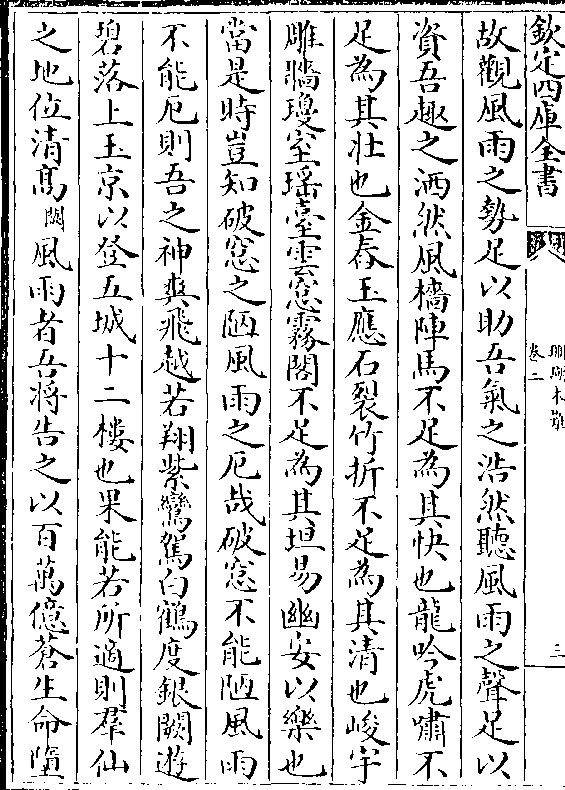 欽定四庫全書
珊瑚木難
卷二
三
故觀風雨之勢足以助吾氣之浩然聽風雨之聲足以
資吾趣之洒然風檣陣馬不足為其快也龍吟虎嘯不
足為其壯也金舂玉應石裂竹折不足為其清也峻宇
雕牆瓊室瑶臺雲窓霧閣不足為其坦易幽安以樂也
當是時豈知破窓之陋風雨之厄哉破窓不能陋風雨
不能厄則吾之神爽飛越若翔紫鸞駕白鶴度銀闕遊
碧落上玉京以登五城十二樓也果能若所適則羣仙
之地位清髙闕風雨者吾將告之以百萬億蒼生命墮